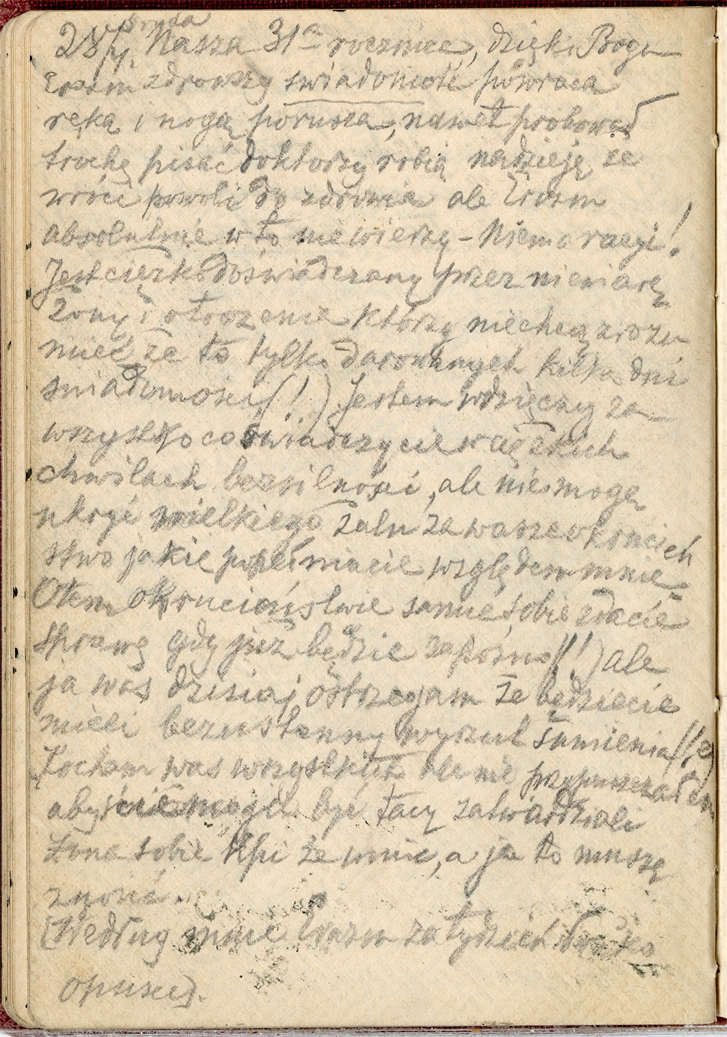 środa
28/V. Nasza 31ª rocznica, dzięki Bogu
Erazm zdrowszy świadomość powraca
ręką i nogą porusza, nawet próbował
trochę pisać doktorzy robią nadzieję że
wróci powoli do zdrowia ale Erazm
absolutnie w to nie wierzy – Niema racyi!
Jest ciężko doświadczany przez niewiarę
Żony i otoczenie którzy niechcą zrozu
mieć że to tylko darowanych kilka dni
świadomości (!) Jestem wdzięczny za
wszystko co świadczycie w ciężkich
chwilach bezsilności, ale nie mogę
ukryć wielkiego żalu za wasze okrucień
stwo jakie popełniacie względem mnie
O tem okrucieństwie same sobie zdacie
sprawę gdy już będzie zapóźno (!) ale
ja was dzisiaj ostrzegam że będziecie
mieli bezustanny wyrzut sumienia
Kocham was wszystkich ale nie przypuszczałem
abyście mogli być tacy zatwardziali
Żona sobie kpi ze mnie, a ja to muszę
znosić.
(Według mnie Erazm za tydzień łóżko
opuści).